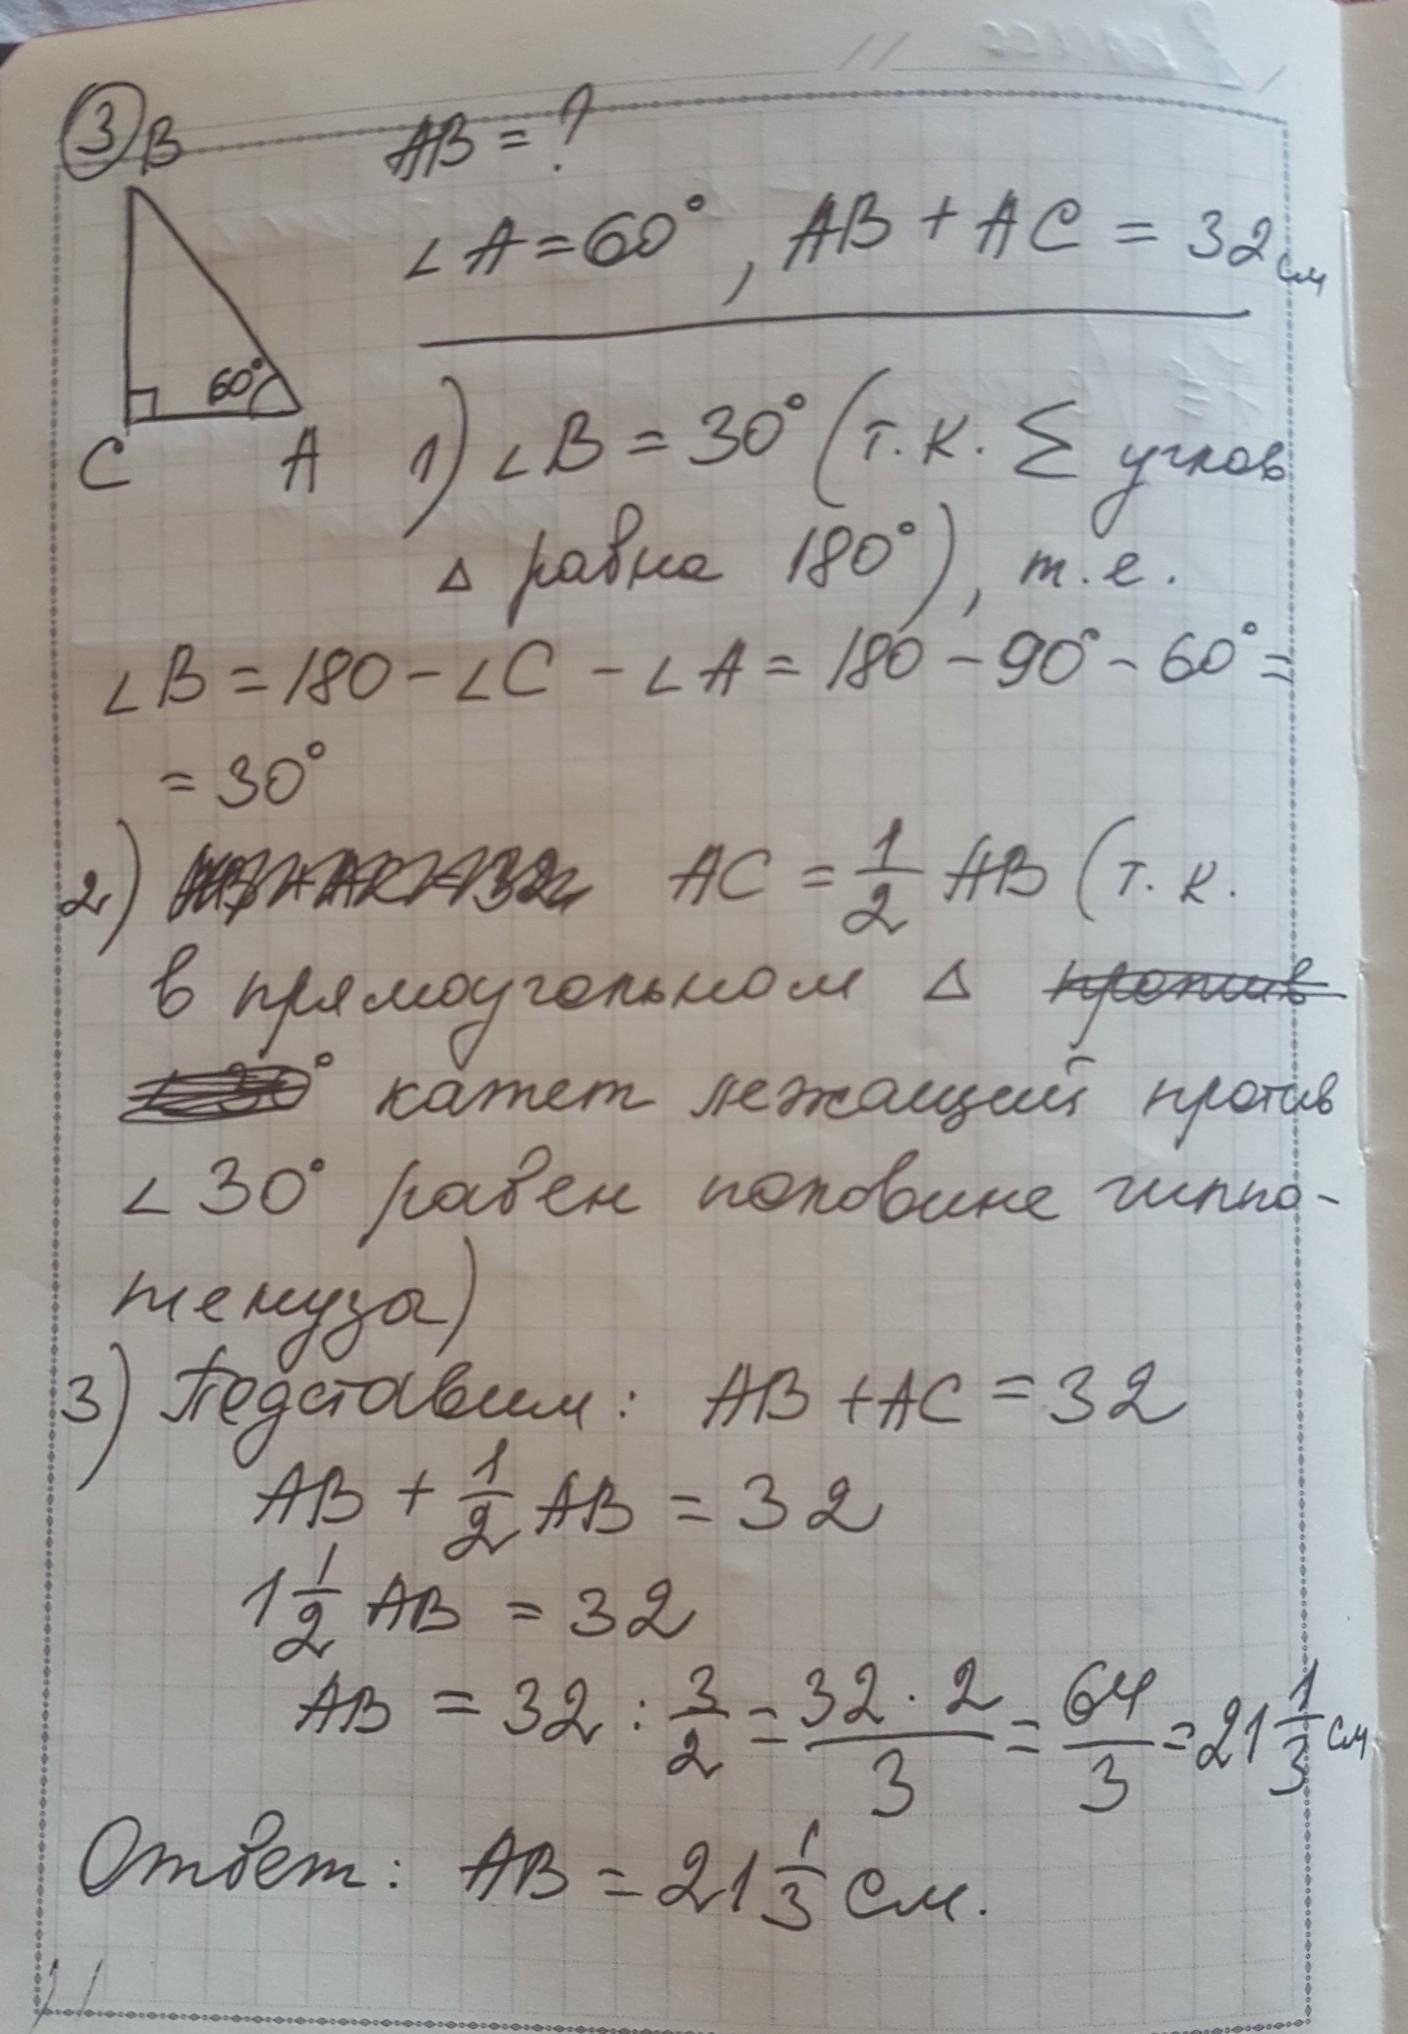 ③ B AB = ?
∠A = 60°, AB + AC = 32 см
60°
C A 1) ∠B = 30° (т.к. Σ углов
Δ равна 180°), т.е.
∠B = 180 - ∠C - ∠A = 180 - 90° - 60° =
= 30°
2) AC = 1/2 AB (т.к.
в прямоугольном Δ против
катет лежащий против
∠30° равен половине гиппо-
тенузы)
3) Подставим: AB + AC = 32
AB + 1/2 AB = 32
1 1/2 AB = 32
AB = 32 : 3/2 = 32 · 2/3 = 64/3 = 21 1/3 см
Ответ: AB = 21 1/3 см.